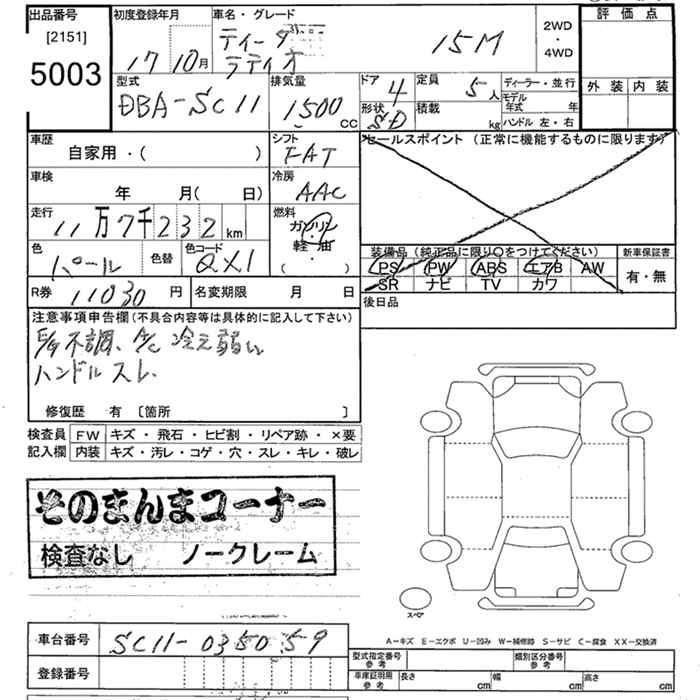 出品番号 初度登録年月 車名・グレード 評価点
[2151] 17 10月 ティーダ ラティオ 15M 2WD・4WD
5003 型式 排気量 ドア 4 定員 5人 ディーラー・並行 外装 内装
DBA-SC11 1500cc 形状 SD 積載 kg モデル年式 年
ハンドル 左・右
車歴 シフト セールスポイント(正常に機能するものに限ります)
自家用・( ) FAT
車検 冷房
年 月( 日) AAC
走行 燃料
11万7千232km ガソリン
軽油
( )
色 パール 色替 色コード QX1 装備品(純正品に限り○をつけてください) 新車保証書
PS PW ABS エアB AW 有・無
SR ナビ TV カワ
R券 11030円 名変期限 月 日 後日品
注意事項申告欄(不具合内容等は具体的に記入して下さい)
E/g不調、A/C冷え弱い
ハンドルスレ、
修復歴 有 〔箇所 〕
検査員 FW キズ・飛石・ヒビ割・リペア跡・×要
記入欄 内装 キズ・汚レ・コゲ・穴・スレ・キレ・破レ
そのまんまコーナー
検査なし ノークレーム
スペア
A-キズ E-エクボ U-凹み W-補修跡 S-サビ C-腐食 XX-交換済
車台番号 SC11-035059
登録番号
型式指定番号 参考 類別区分番号 参考
車庫証明用 参考 長さ cm 幅 cm 高さ cm